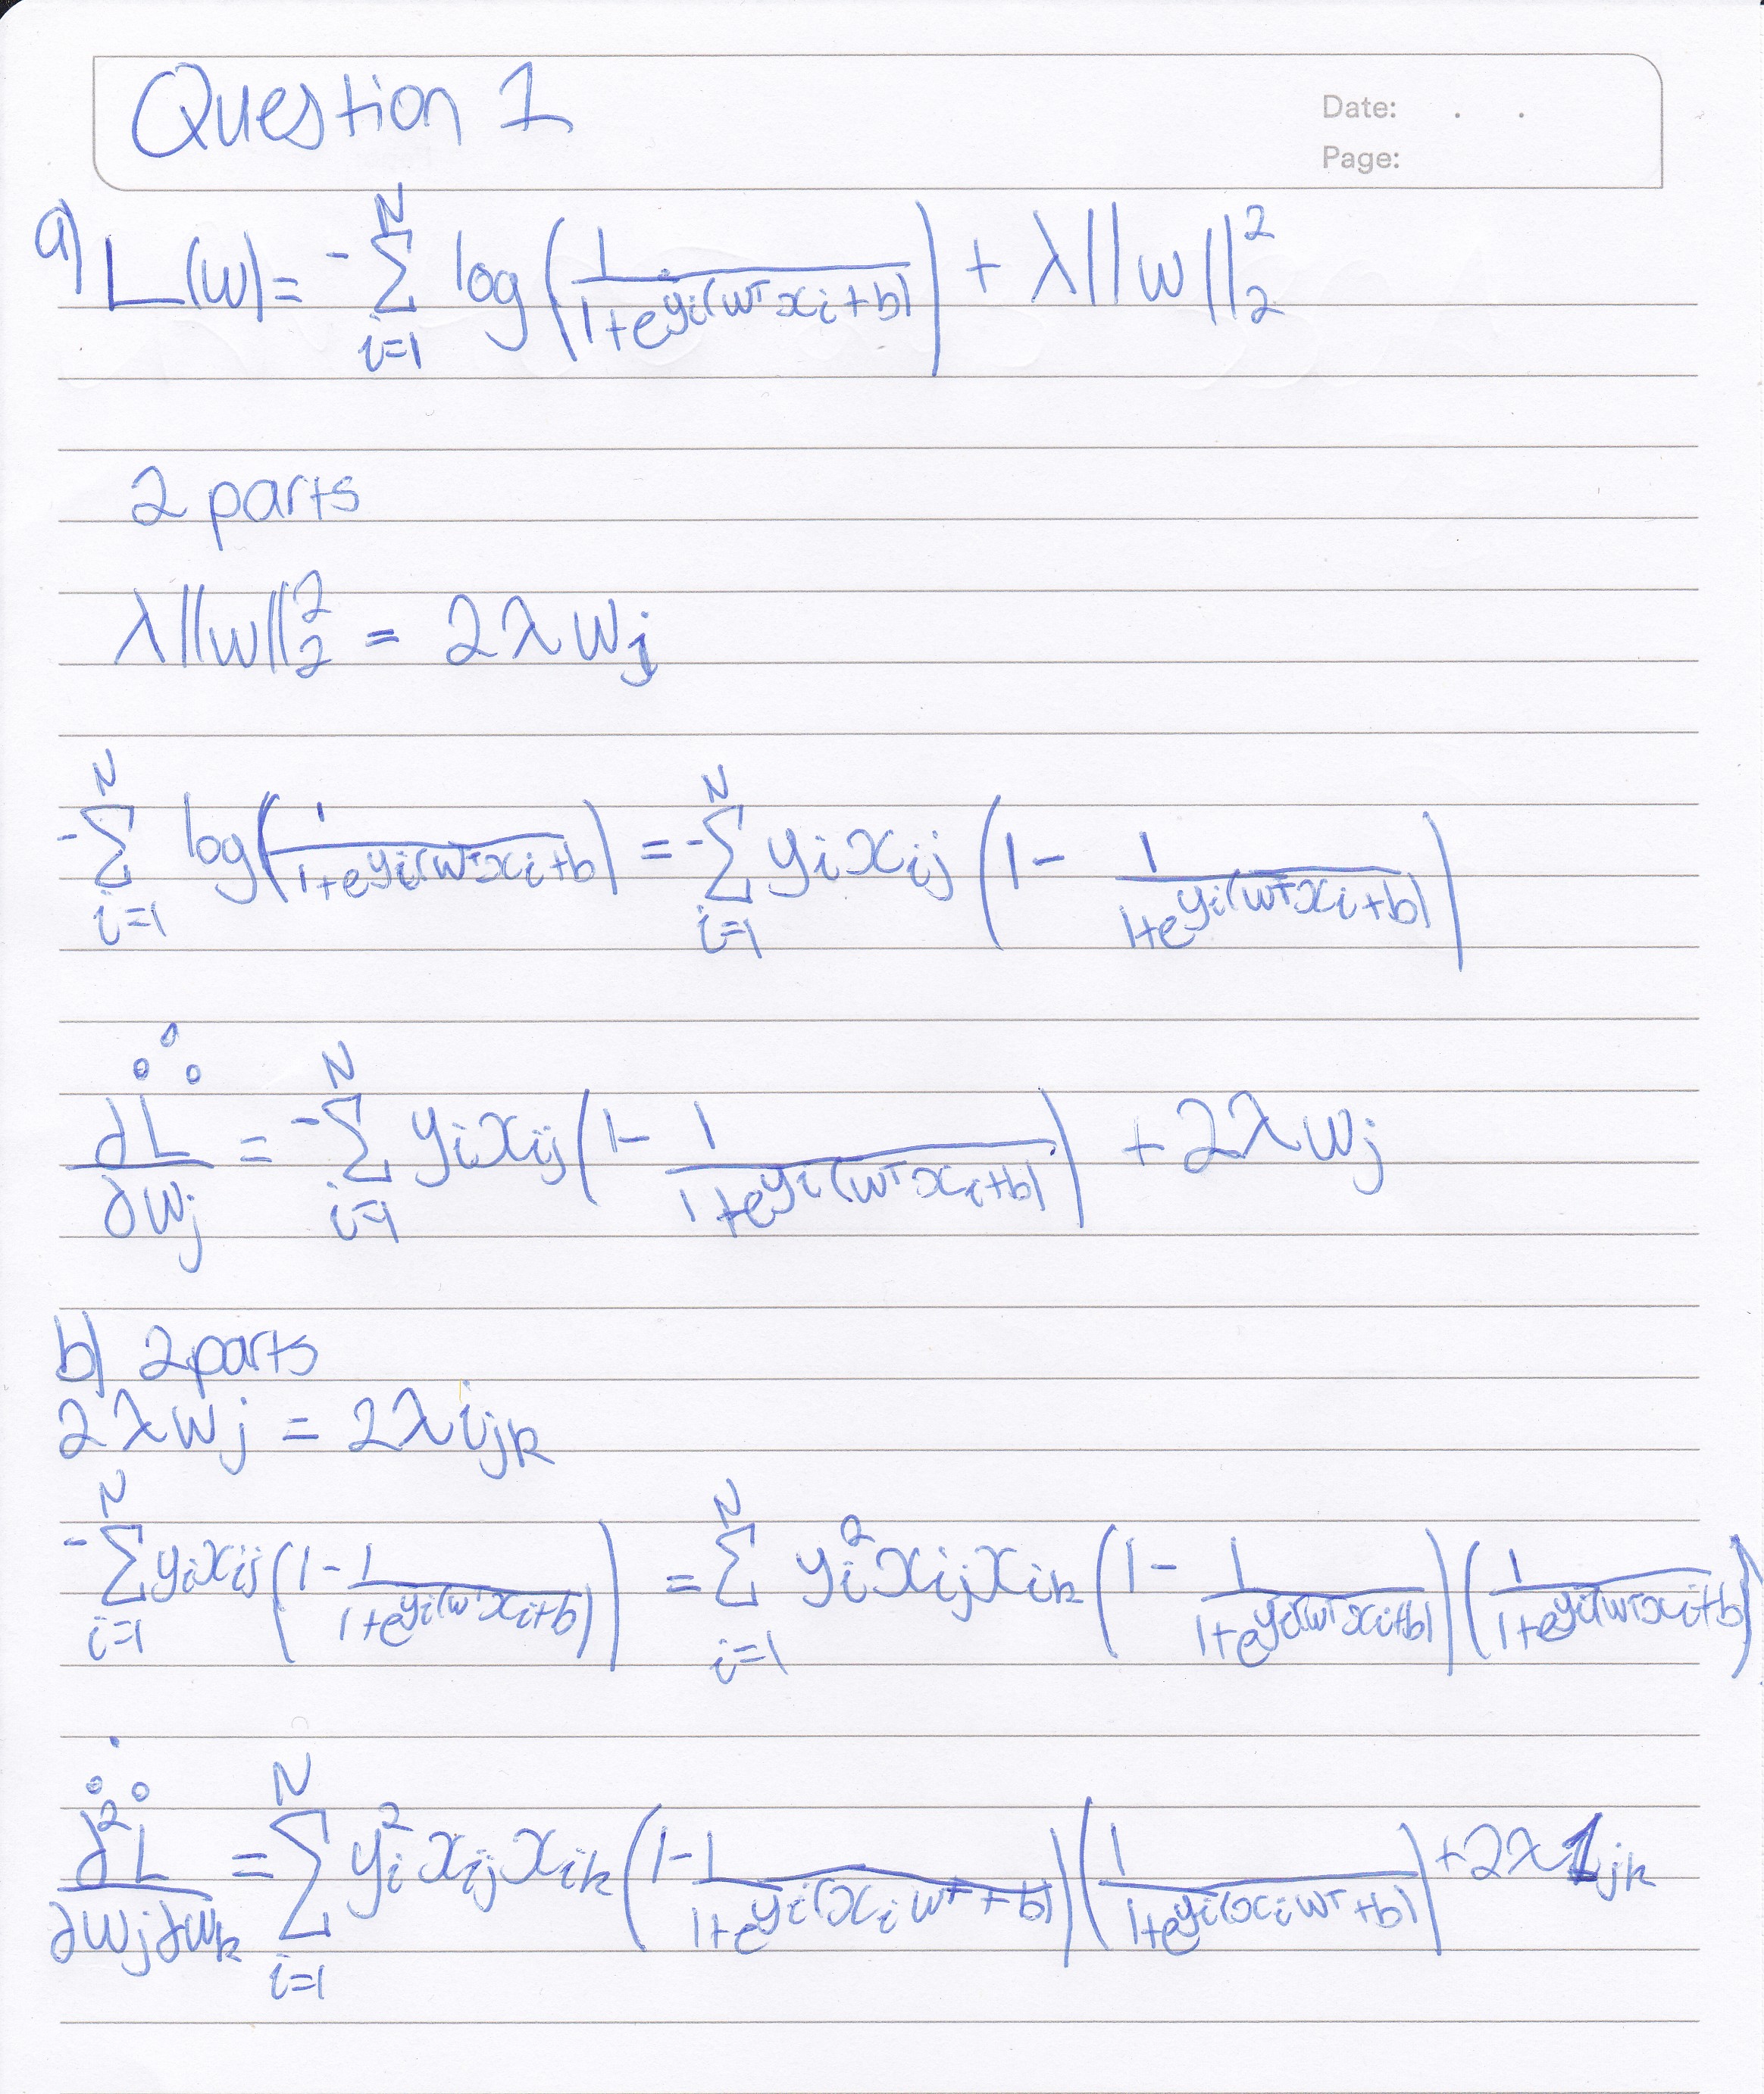 Question 1
Date: . .
Page:
a) L(w) = -∑_{i=1}^{N} log(1/(1+e^{yi(wᵀxi+b)})) + λ||w||₂²
2 parts
λ||w||₂² = 2λwj
-∑_{i=1}^{N} log(1/(1+e^{yi(wᵀxi+b)})) = -∑_{i=1}^{N} yixij(1 - 1/(1+e^{yi(wᵀxi+b)}))
∴
∂L/∂wj = -∑_{i=1}^{N} yixij(1 - 1/(1+e^{yi(wᵀxi+b)})) + 2λwj
b) 2 parts
2λwj = 2λijk
-∑_{i=1}^{N} yixij(1 - 1/(1+e^{yi(wᵀxi+b)})) = ∑_{i=1}^{N} yi²xijxik(1 - 1/(1+e^{yi(wᵀxi+b)}))(1/(1+e^{yi(wᵀxi+b)}))
∴
∂²L/∂wj∂wk = ∑_{i=1}^{N} yi²xijxik(1 - 1/(1+e^{yi(xiwᵀ+b)}))(1/(1+e^{yi(xiwᵀ+b)})) + 2λ1jk